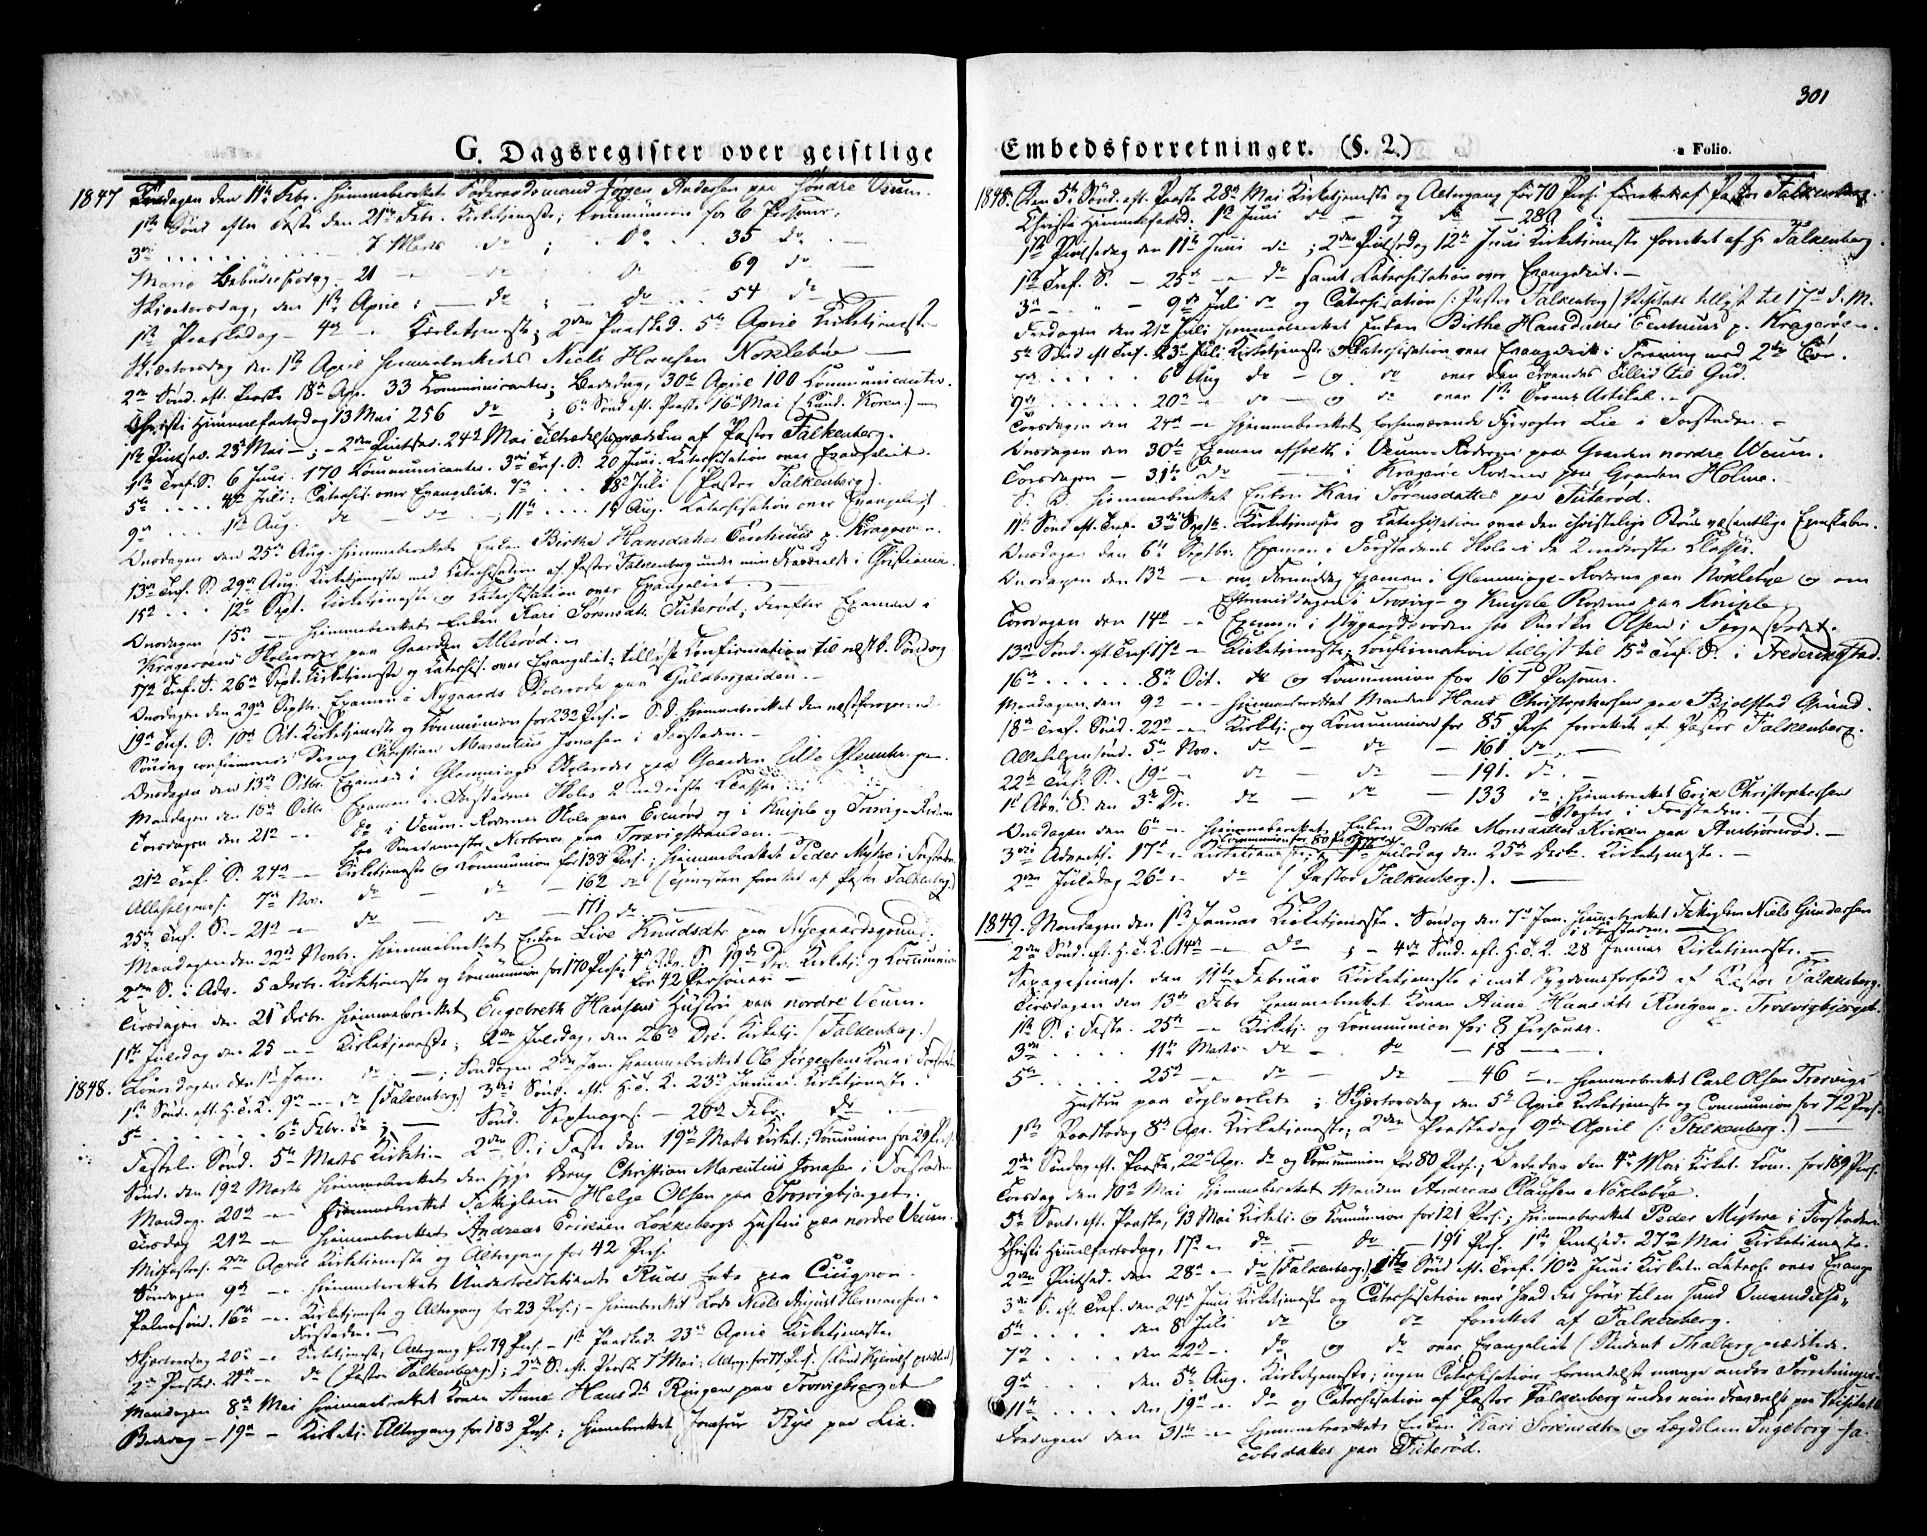 301
G. Dagsregister over geistlige Embedsforretninger. (§. 2.)
a Folio.
1847 Fredagen den 11te Febr. hjemmeberettet Formandsmand Jørgen Andersen paa søndre Veum.
1ste Sønd efter Faste den 21de Febr. Kirketjeneste; Kommunion for 6 Personer.
3die 7 Marts do ; do 35 do
Mariæ Bebudelsesdag - 21 - do do 69 do
Skjærtorsdag, den 1ste April ; do ; do 54 do
1ste Paaskedag - 4de - Kirketjeneste; 2den Paasked. 5te April Kirketjeneste
Skjærtorsdag den 1ste April hjemmeberettedes Niels Hansen Nøklebye
2den Sønd. eft. Paaske 18de Apr. 33 Kommunicanter; Bededag, 30te April 100 Kommunicanter.
Christi Himmelfartsdag 13 Mai 256 do ; 6te Sønd eft. Paaske 16de Mai (Cand. Koren.)
1ste Pintsed. 23de Mai - ; 2den Pintsed. 24de Mai Tiltrædelsesprædiken af Pastor Falkenberg.
1ste Tref. S. 6 Juni. 170 Kommunicanter. 3die Tref. S. 20 Juni. Katechisation over Evangeliet.
5te 4de Juli; Catechis. over Evangeliet. 7de 18de Juli (Pastor Falkenberg).
9de 1ste Aug. do do ; 11te 15 Aug. Katechisation over Evangeliet
Onsdagen den 25de Aug. hjemmeberettet Enken Birthe Hansdatter p. Kragerøen.
13de Tref. S. 29de Aug. Kirketjeneste med Katechisation af Pastor Falkenberg under min Fraværelse i Christiania.
15de 12te Sept. Kirketjeneste og Katechisation over Evangeliet.
Onsdagen 15de - hjemmeberettet Enken Kari Sørensdatt. Titerød; derefter Examen i
Kragerøens Skolerode paa Gaarden Allerød.
17de Tref. S. 26de Sept. Kirketjeneste og Katechis. over Evangeliet; tillyst Confirmation til næste Søndag
Onsdagen den 29de Septbr. Examen i Nygaards Skolerode paa Guldborgsiden.
19de Tref. S. 10de Oct. Kirketjeneste og Kommunion for 232 Pers. - S.D. hjemmeberettet den næstforegaaende
Søndag confirmerede Dreng Christian Marentius Jonasen i Forstaden.
Onsdagen den 13de Octbr. Examen i Glemminge Skolerode paa Gaarden Lille Glemminge
Mandagen den 18de Octbr. Examen i Forstadens Skoles 2 nederste Classer
Torsdagen den 21de - do i Veum-Rodens Skole paa Evenrød og i Kniple og Trosvig-Roden
hos paa Trosvigstranden.
21de Tref. S. 24de - Kirketjeneste og Kommunion for 133 Pers.; hjemmeberettet Peder Mysre i Forstaden
Allehelgens. 7de Nov. do - do - 162 do (Tjenesten forrettet af Pastor Falkenberg.)
25de Tref. S. - 21de - do - do - 171 do
Mandagen den 22de Novbr. hjemmeberettet Enken Live Knudsdatr paa Nygaardsgrund.
2den S. i Adv. 5 Decbr. Kirketjeneste og Kommunion for 170 Pers.; 4de Adv. S. 19de Dec. Kirketj. og Kommunion
for 42 Personer
Tirsdagen den 21 Decbr. hjemmeberettet Engebreth Hansens Hustru paa nordre Veum.
1ste Juledag den 25 - - Kirketjeneste; 2den Juledag, den 26de Dec. Kirketj. (Falkenberg.)
1848. Løverdagen den 1ste Jan. do - ; Søndagen 2den Jan. hjemmeberettet Ole Jørgensens Kone i Forstaden
1ste Sønd. eft. H.T.K. 9de - do (Falkenberg.) 3die Sønd. eft. H.T.K. 23de Januar. Kirketjeneste.
5te 6te Febr. do ; Sønd. Septuages. - 20de Febr. do
Fastel. Sønd. 5te Marts Kirketj. - 2den S. i Faste den 19de Marts Kirket.; Kommunion for 29 Pers.
Sønd. den 19de Marts hjemmeberettet den syge Dreng Christian Marentius Jonasen i Forstaden
Mandag 20de - hjemmeberettet Helge Olsen paa Trosvigbjerget.
Tirsdag 21de - hjemmeberettet Andreas Eriksen Løkkebergs Hustru paa nordre Veum.
Midfastes. 2den April Kirketjeneste og Altergang for 42 Pers.
Søndagen 9de - hjemmeberettet paa Cicignon.
Palmesønd. 16de - Kirketjeneste og Altergang for 23 Pers.; - hjemberettet Lods Niels August Hermansen
Forstaden.
Skjærtorsdag 20de - Kirketjeneste, Altergang for 79 Pers. - 1ste Paasked. 23de April Kirketjeneste
2den Paasked. 24de - do (Pastor Falkenberg); 2den S. eft. Paaske 7 Mai; Alterg. for 77 Pers.
Mandagen 8de Mai hjemmeberettet Konen Anne Hansdr Ringen paa Trosvigberget
Bededag - 19de - Kirketj. Altergang for 183 Pers.; hjemmeberettet Jomfru Rye paa Lie.
1848. Den 5te Sönd. eft. Paaske 28de Mai Kirketjeneste og Altergang for 70 Pers. forrettet af Pastor Falkenberg.
Christi Himmelfartsd. 1ste Juni do - og do - 289
1ste Pintsedag den 11te Juni do ; 2den Pintsedag 12te Juni Kirketjeneste forrettet af Hr Falkenberg.
1ste Tref. S. - 25de - do samt Katechisation over Evangeliet.
3die - 9de Juli do og Catechisation (: Pastor Falkenberg) Visitats tillyst til 17de d. M.
Fredagen den 21de Juli hjemmeberettet Enken Birthe Hansdatter p. Kragerøen.
5te Sönd eft Tref. 23de Juli Kirketjeneste og Katechisation over Evangeliet i Forening med 2den Cor.
7de 6te Aug do - og do over den Troendes Tillid til Gud.
9de 20de - do - og do over 1ste Troens Artikel.
Torsdagen den 24de - hjemmeberettet forhenværende Lie i Forstaden.
Onsdagen den 30te Examen afholdt i Veum-Roden paa Gaarden nordre Veum.
Torsdagen - 31te do - i Kragerøe Roden paa Gaarden Holme.
S. D. hjemmeberettet Enken Kari Sørensdatter paa Titerød.
11te Sønd eft. Tref. 3die Septb. Kirketjeneste og Katechisation over den christelige væsentlige Egenskaber.
Onsdagen den 6te Septbr. Examen i Forstadens Skole i de 2 nederste Classer.
Onsdagen den 13de - om Formiddag Examen i Glemminge-Roden paa Nöklebye og om
Eftermiddagen i Trosvig- og Kniple Roden paa Kniple.
Torsdagen den 14de - Examen i Nygaardsroden hos Snedker Olsen i
13de Sønd. eft. Tref. 17de - Kirketjeneste; Confirmation tillyst til 15de Tref. S. i Frederikstad.
16de 8de Oct. do og Kommunion for 167 Personer.
Mandagen den 9de - hjemmeberettet Manden Hans Christophersen paa Bjelstad Grund.
18de Tref. Sønd. 22de - Kirketj. og Kommunion for 85 Pers. forrettet af Pastor Falkenberg.
Allehelgensønd. 5te Nov. do - do - 161 do
22de Tref. S. (19de - do - do - 191. do.
1ste Adv. S. den 3die Dec. do - do - 133 do; hjemmeberettet Erik Christophersen
Vegter i Forstaden.
Onsdagen den 6te - hjemmeberettet Enken Dorthe Monsdatter Kirken paa Ambjørnrød.
3die Advents. 17de - Kirketjeneste; Kommunion for 80 Personer; 1ste Juledag den 25de Decbr. Kirketjeneste.
2den Juledag 26de - do (Pastor Falkenberg.).
1849. Mandagen den 1ste Januar Kirketjeneste. Søndag den 7de Jan. hjemmeberettet Niels Gundersen
i Forstaden
2den Sønd. eft. H.T.K. 14de - do ; - 4de Sönd. eft. H.T.K. 28 Januar Kirketjeneste.
Sexagesimas. den 11te Februar Kirketjeneste i mit Sygdomsforfald af Pastor Falkenberg.
Tirsdagen den 13de Febr hjemmeberettet Konen Anne Hansdatr Ringen p. Trosvigbjerget.
1ste S. i Faste. 25de - Kirketj. og Kommunion for 8 Personer.
3die 11te Marts do - do - 18
5te 25de - do - do - 46 - hjemmeberettet Carl Olsen Trosvigs
Hustru paa Teglverket; Skjærtorsdag den 5te April Kirketjeneste og Communion for 72 Pers.
1ste Paaskedag 8de Apr. Kirketjeneste; 2den Paaskedag 9de April (: Falkenberg.)
2den Søndag eft. Paaske, 22de Apr. do og Kommunion for 80 Pers.; Bededag den 4de Mai Kirket. Kom. for 189 Pers.
Torsdag den 10de Mai hjemmeberettet Manden Andreas Clausen Nöklebye.
5te Sönd. eft. Paaske, 13 Mai Kirketj. og Kommunion for 121 Pers.; hjemmeberettet Peder Mysre i Forstaden
Christi Himmelfartsdag, 17de - do - do - 191 Pers. 1ste Pintsed. 27de Mai Kirketjeneste.
2den Pintsed. den 28de - do (Falkenberg); 1ste Sönd eft. Tref. 10de Juni Kirket. Catech. over Evang.
3die S. eft. Tref. den 24de Juni Kirketjeneste og Catechisation over hvad der hører til en sand Omvendelse.
5te den 8 Juli do og do forrettet af Falkenberg.
7de den 22de - do og do over Evangeliet (Student Thalberg prædikede.
9de den 5te Aug. Kirketjeneste; ingen Catechisation formedelst mange andre Forretninger.
11te den 19de - do og Catechisation af Pastor Falkenberg under min Fraværelse paa Visitats
Fredagen den 31te - hjemmeberettet Enken Kari Sørensdtr og Lægdslem Ingeborg Ja-
cobsdatter paa Titerød.